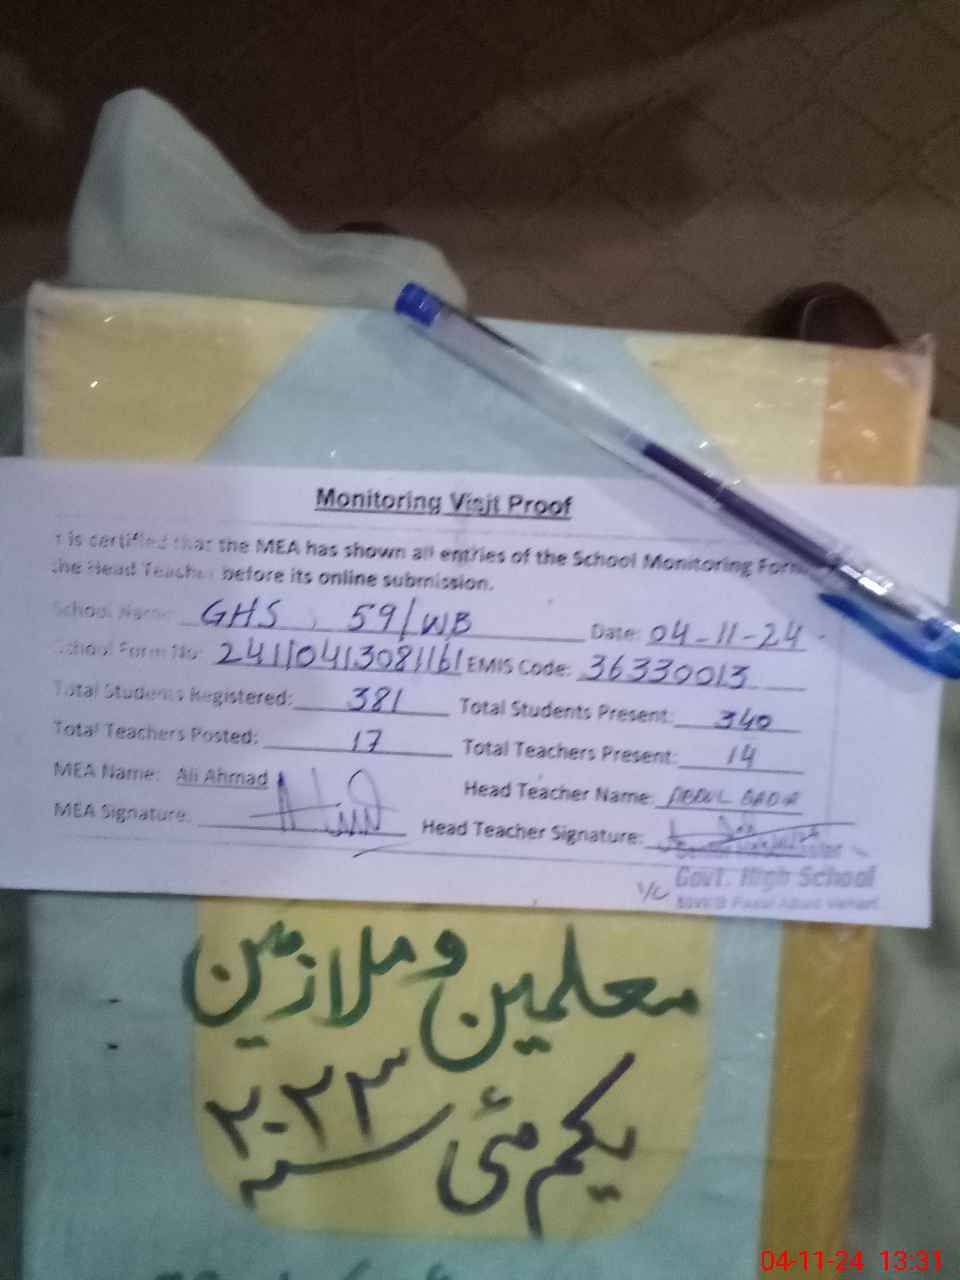 Monitoring Visit Proof
is certified that the MEA has shown all entries of the School Monitoring Form
the Head Teacher before its online submission.
School Name: GHS 59/WB Date: 04-11-24
School Form No: 24110413081161 EMIS Code: 36330013
Total Students Registered: 381 Total Students Present: 340
Total Teachers Posted: 17 Total Teachers Present: 14
MEA Name: Ali Ahmad Head Teacher Name: ABDUL
MEA Signature: Head Teacher Signature:
Govt. High School
معلمین و ملازمین
یکم مئی سنہ ۲۰۲۳
04-11-24 13:31